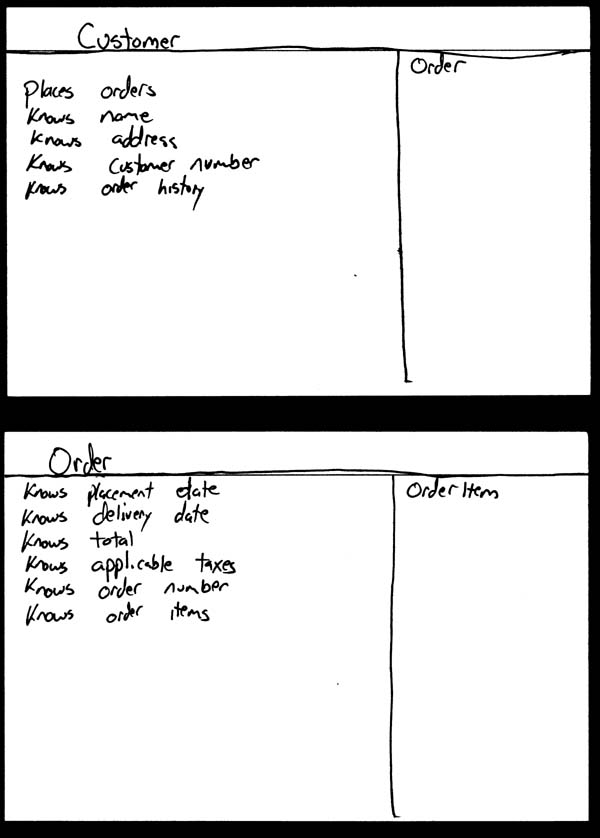 Customer
Order
Places orders
Knows name
Knows address
Knows Customer number
Knows order history
Order
Order Item
Knows placement date
Knows delivery date
Knows total
Knows applicable taxes
Knows order number
Knows order items